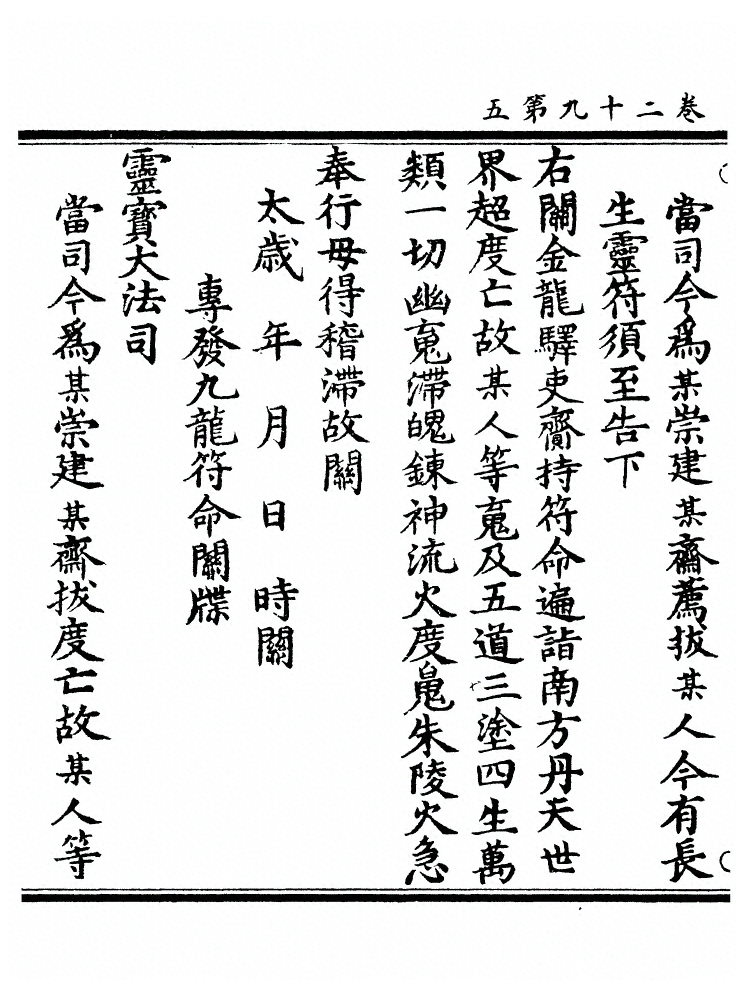 卷二十九第五
當司今爲某崇建某齋薦拔某人今有長
生靈符須至告下
右關金龍驛吏齎持符命遍詣南方丹天世
界超度亡故某人等䰟及五道三塗四生萬
類一切幽䰟滯魄鍊神流火度䰟朱陵火急
奉行毋得稽滯故關
太歲年月日時關
專發九龍符命關牒
靈寶大法司
當司今爲某崇建某齋拔度亡故某人等